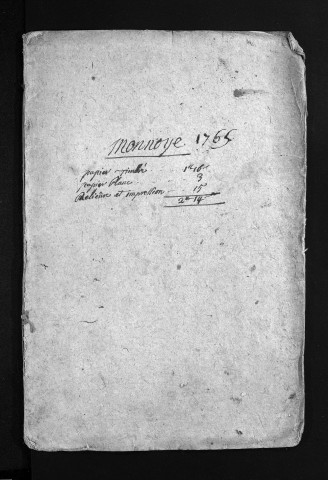 Monnoye 1765
papier timbré 1# 16s
papier blanc 3
Reliure et impression 15s
2# 14s